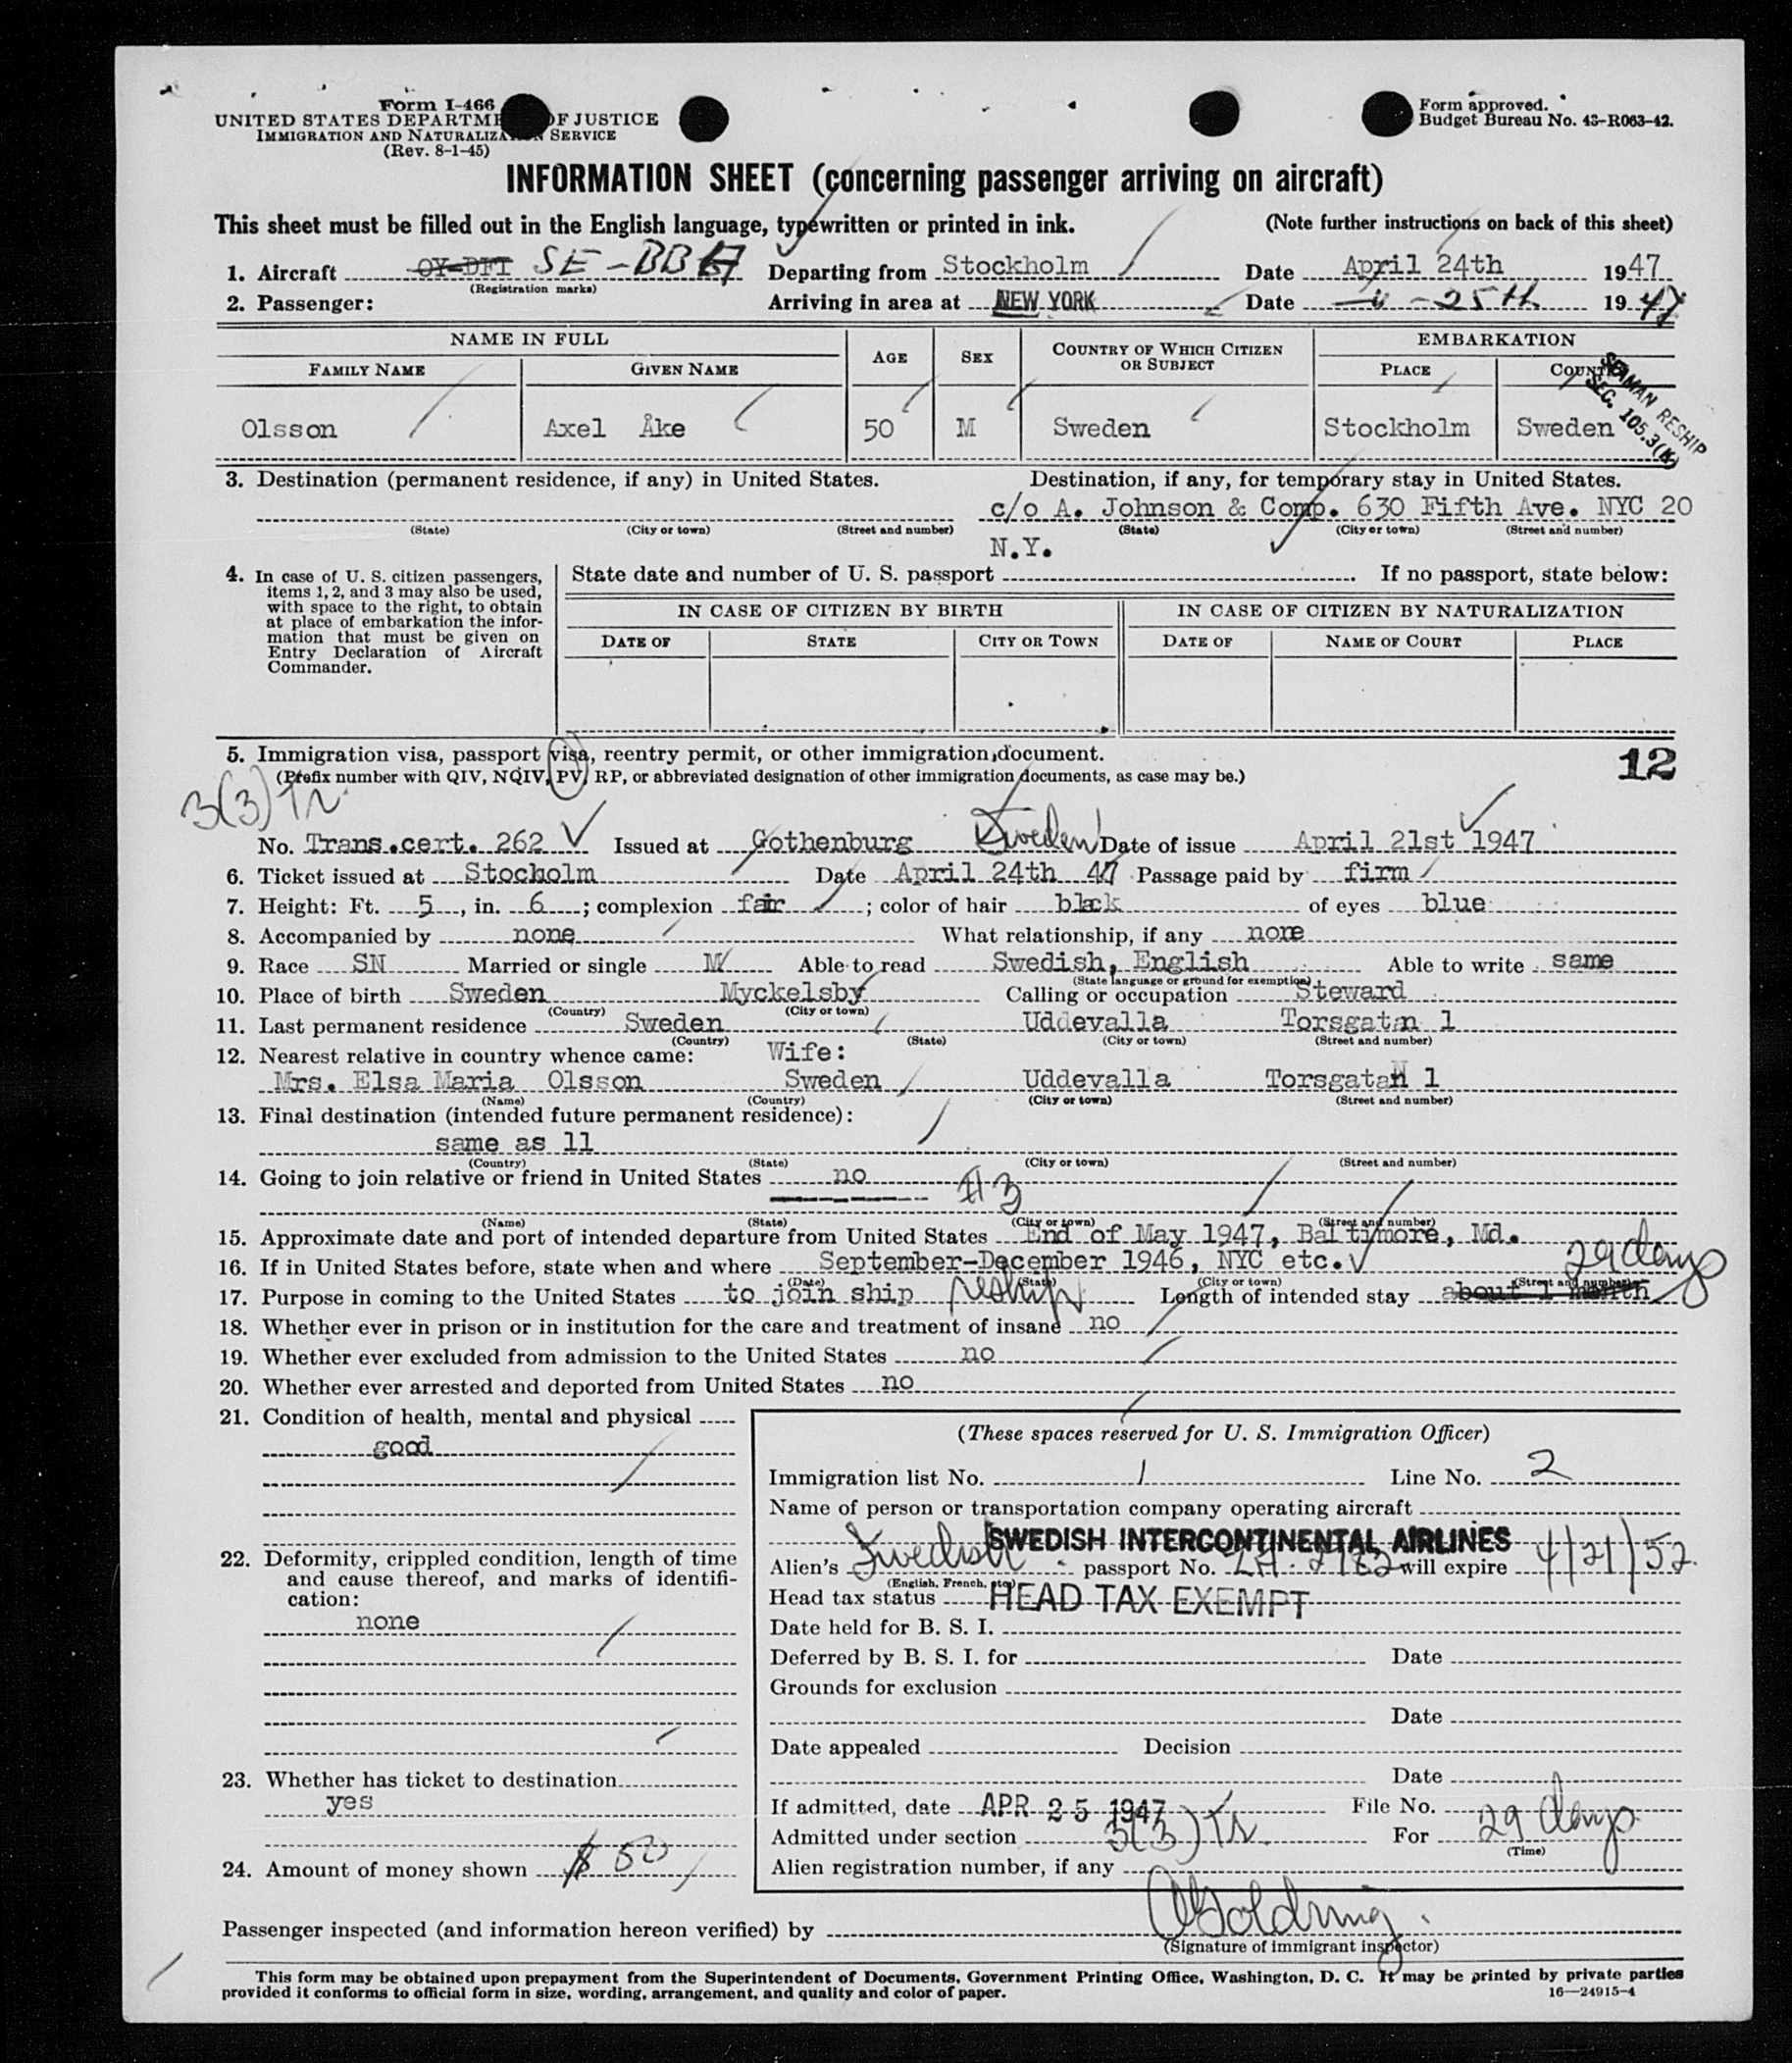 Form I-466
UNITED STATES DEPARTMENT OF JUSTICE
IMMIGRATION AND NATURALIZATION SERVICE
(Rev. 8-1-45)
Form approved.
Budget Bureau No. 43-R063-42.
INFORMATION SHEET (concerning passenger arriving on aircraft)
This sheet must be filled out in the English language, typewritten or printed in ink. (Note further instructions on back of this sheet)
1. Aircraft OY-DFI SE-BB Departing from Stockholm Date April 24th 1947
(Registration marks)
2. Passenger: Arriving in area at NEW YORK Date " - 25th 1947
NAME IN FULL AGE SEX COUNTRY OF WHICH CITIZEN OR SUBJECT EMBARKATION
FAMILY NAME GIVEN NAME PLACE COUNTRY
SEAMAN RESHIP
SEC. 105.3(K)
Olsson Axel Åke 50 M Sweden Stockholm Sweden
3. Destination (permanent residence, if any) in United States. Destination, if any, for temporary stay in United States.
c/o A. Johnson & Comp. 630 Fifth Ave. NYC 20
(State) (City or town) (Street and number) (State) (City or town) (Street and number)
N.Y.
4. In case of U. S. citizen passengers, items 1, 2, and 3 may also be used, with space to the right, to obtain at place of embarkation the information that must be given on Entry Declaration of Aircraft Commander.
State date and number of U. S. passport . If no passport, state below:
IN CASE OF CITIZEN BY BIRTH IN CASE OF CITIZEN BY NATURALIZATION
DATE OF STATE CITY OR TOWN DATE OF NAME OF COURT PLACE
5. Immigration visa, passport visa, reentry permit, or other immigration document. 12
(Prefix number with QIV, NQIV, PV, RP, or abbreviated designation of other immigration documents, as case may be.)
3(3) Tr.
No. Trans.cert. 262 Issued at Gothenburg Sweden Date of issue April 21st 1947
6. Ticket issued at Stocholm Date April 24th 47 Passage paid by firm
7. Height: Ft. 5, in. 6; complexion fair; color of hair black of eyes blue
8. Accompanied by none What relationship, if any none
9. Race SN Married or single M Able to read Swedish, English Able to write same
(State language or ground for exemption)
10. Place of birth Sweden Myckelsby Calling or occupation Steward
(Country) (City or town)
11. Last permanent residence Sweden Uddevalla Torsgatan 1
(Country) (State) (City or town) (Street and number)
12. Nearest relative in country whence came: Wife:
Mrs. Elsa Maria Olsson Sweden Uddevalla Torsgatan 1
(Name) (Country) (City or town) (Street and number)
13. Final destination (intended future permanent residence):
same as 11
(Country) (State) (City or town) (Street and number)
14. Going to join relative or friend in United States no
#3
(Name) (State) (City or town) (Street and number)
15. Approximate date and port of intended departure from United States End of May 1947, Baltimore, Md.
16. If in United States before, state when and where September-December 1946, NYC etc.
(Date) (State) (City or town) (Street and number)
29 days
17. Purpose in coming to the United States to join ship reship Length of intended stay about 1 month
18. Whether ever in prison or in institution for the care and treatment of insane no
19. Whether ever excluded from admission to the United States no
20. Whether ever arrested and deported from United States no
21. Condition of health, mental and physical
good
22. Deformity, crippled condition, length of time and cause thereof, and marks of identification:
none
23. Whether has ticket to destination
yes
24. Amount of money shown $ 50
(These spaces reserved for U. S. Immigration Officer)
Immigration list No. 1 Line No. 2
Name of person or transportation company operating aircraft
SWEDISH INTERCONTINENTAL AIRLINES
Alien's Swedish passport No. will expire 4/21/52
(English, French, etc.)
Head tax status HEAD TAX EXEMPT
Date held for B. S. I.
Deferred by B. S. I. for Date
Grounds for exclusion
Date
Date appealed Decision
Date
If admitted, date APR 25 1947 File No.
Admitted under section 3(3) Tr. For 29 days
(Time)
Alien registration number, if any
Passenger inspected (and information hereon verified) by Goldring
(Signature of immigrant inspector)
This form may be obtained upon prepayment from the Superintendent of Documents, Government Printing Office, Washington, D. C. It may be printed by private parties
provided it conforms to official form in size, wording, arrangement, and quality and color of paper. 16—24915-4